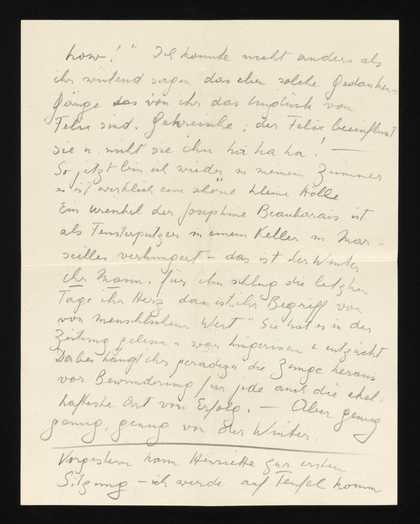 how!" Ich konnte nicht anders als
ihr wütend sagen das eben solche Gedanken
gänge das von ihr das
Felix sind. Gekreische; der Felix beeinflusst
sie u. nicht sie ihn ha ha ha! —
So jetzt bin ich wieder in meinem Zimmer
es ist wirklich eine schöne kleine Hölle
Ein Urenkel der Josephine Beauharnais ist
als Fensterputzer in einem Keller in Mar-
seilles verhungert — das ist der Winter
ihr Mann. für ihn schlug die letzten
Tage ihr Herz dan ist ihr Begriff von
von menschlichem Wert" Sie hat es in der
Zeitung gelesen u war hingerissen u entzückt
Dabei hängt ihr geradezu die Zunge heraus
vor Bewunderung für jede auch die ekel-
hafteste Art von Erfolg. — Aber genug
genug, genug von der Winter.
Vorgestern kam Henriette zur ersten
Sitzung — ich werde auf Teufel komm